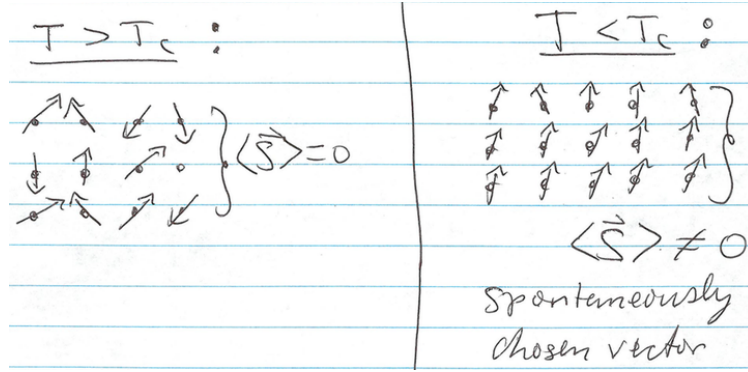 T > Tc :
<S⃗> = 0
T < Tc :
<S⃗> ≠ 0
spontaneously
chosen vector